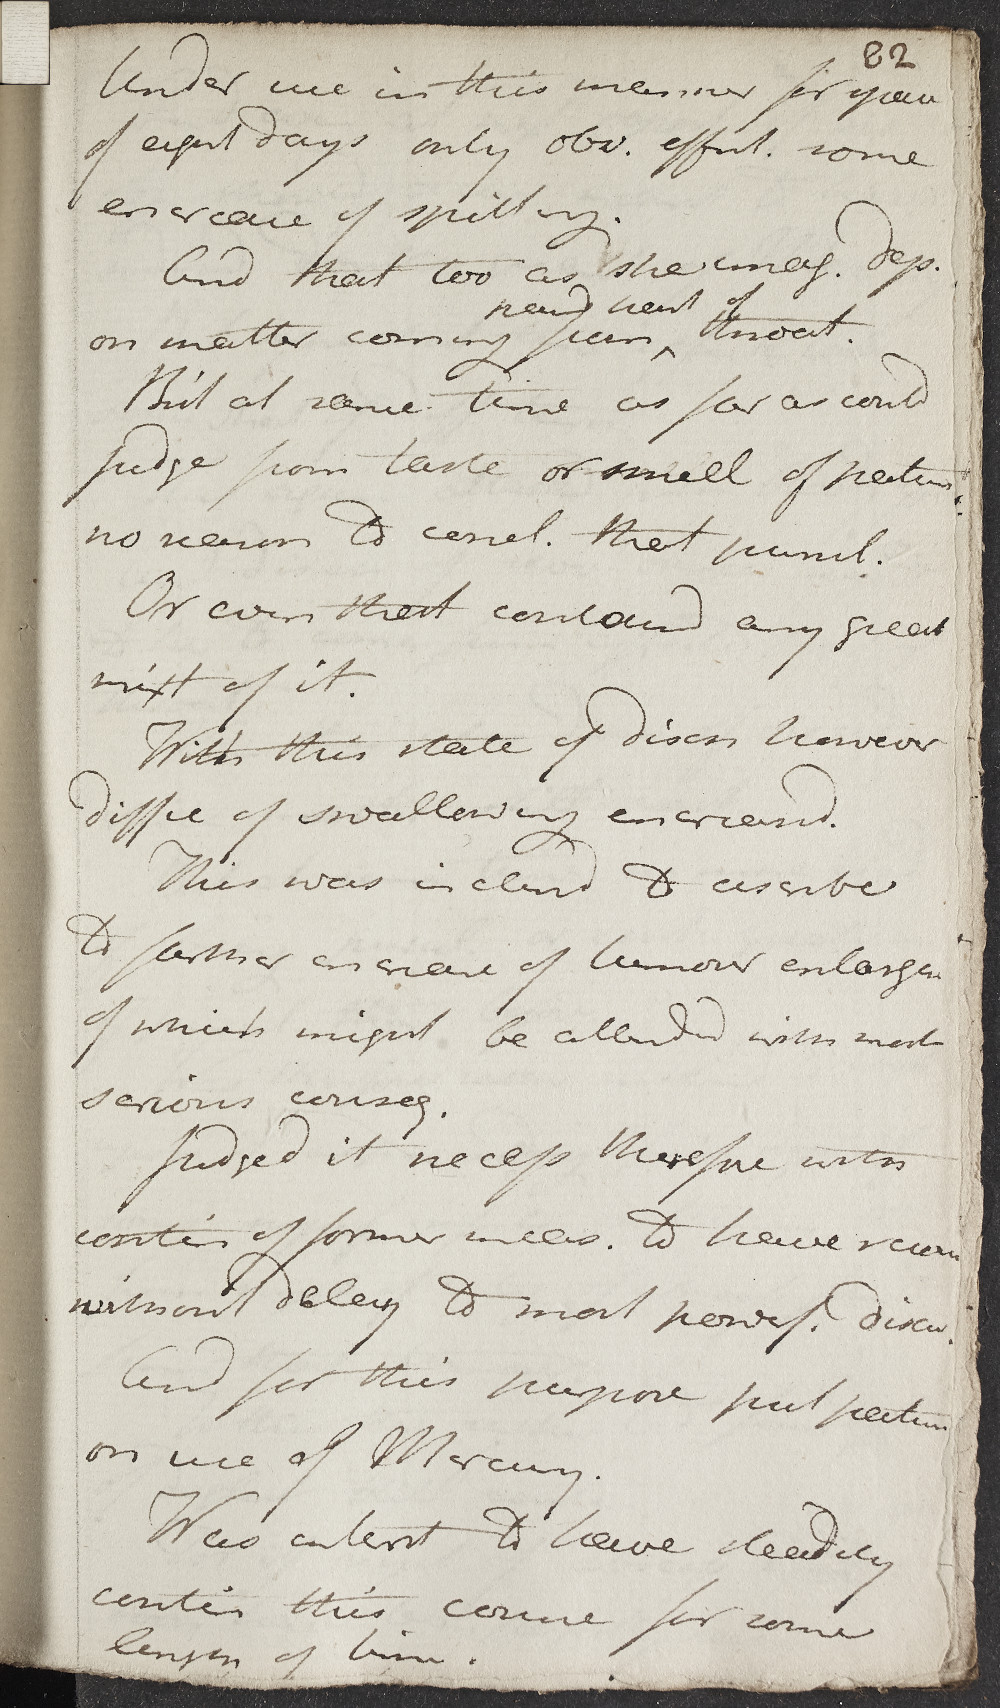 82
Under use in this manner for space
of eight days only obv. effect. some
encrease of spitting.
And that too as she imag. dep.
on matter coming from
pained part of
^ throat.
But at same time as far as could
judge from taste or smell of patient
no reason to concl. that purul.
Or even that contained any great
mixt of it.
With this state of disch however
diffic of swallowing encreased.
This was inclined to ascribe
to farther encrease of tumour enlargem
of which might be attended with most
serious conseq.
Judged it necess therefore with
contin of former meas. to have recourse
without delay to most powerf. discu.
And for this purpose put patient
on use of Mercury.
Was intent to have steadily
contin this course for some
length of time.